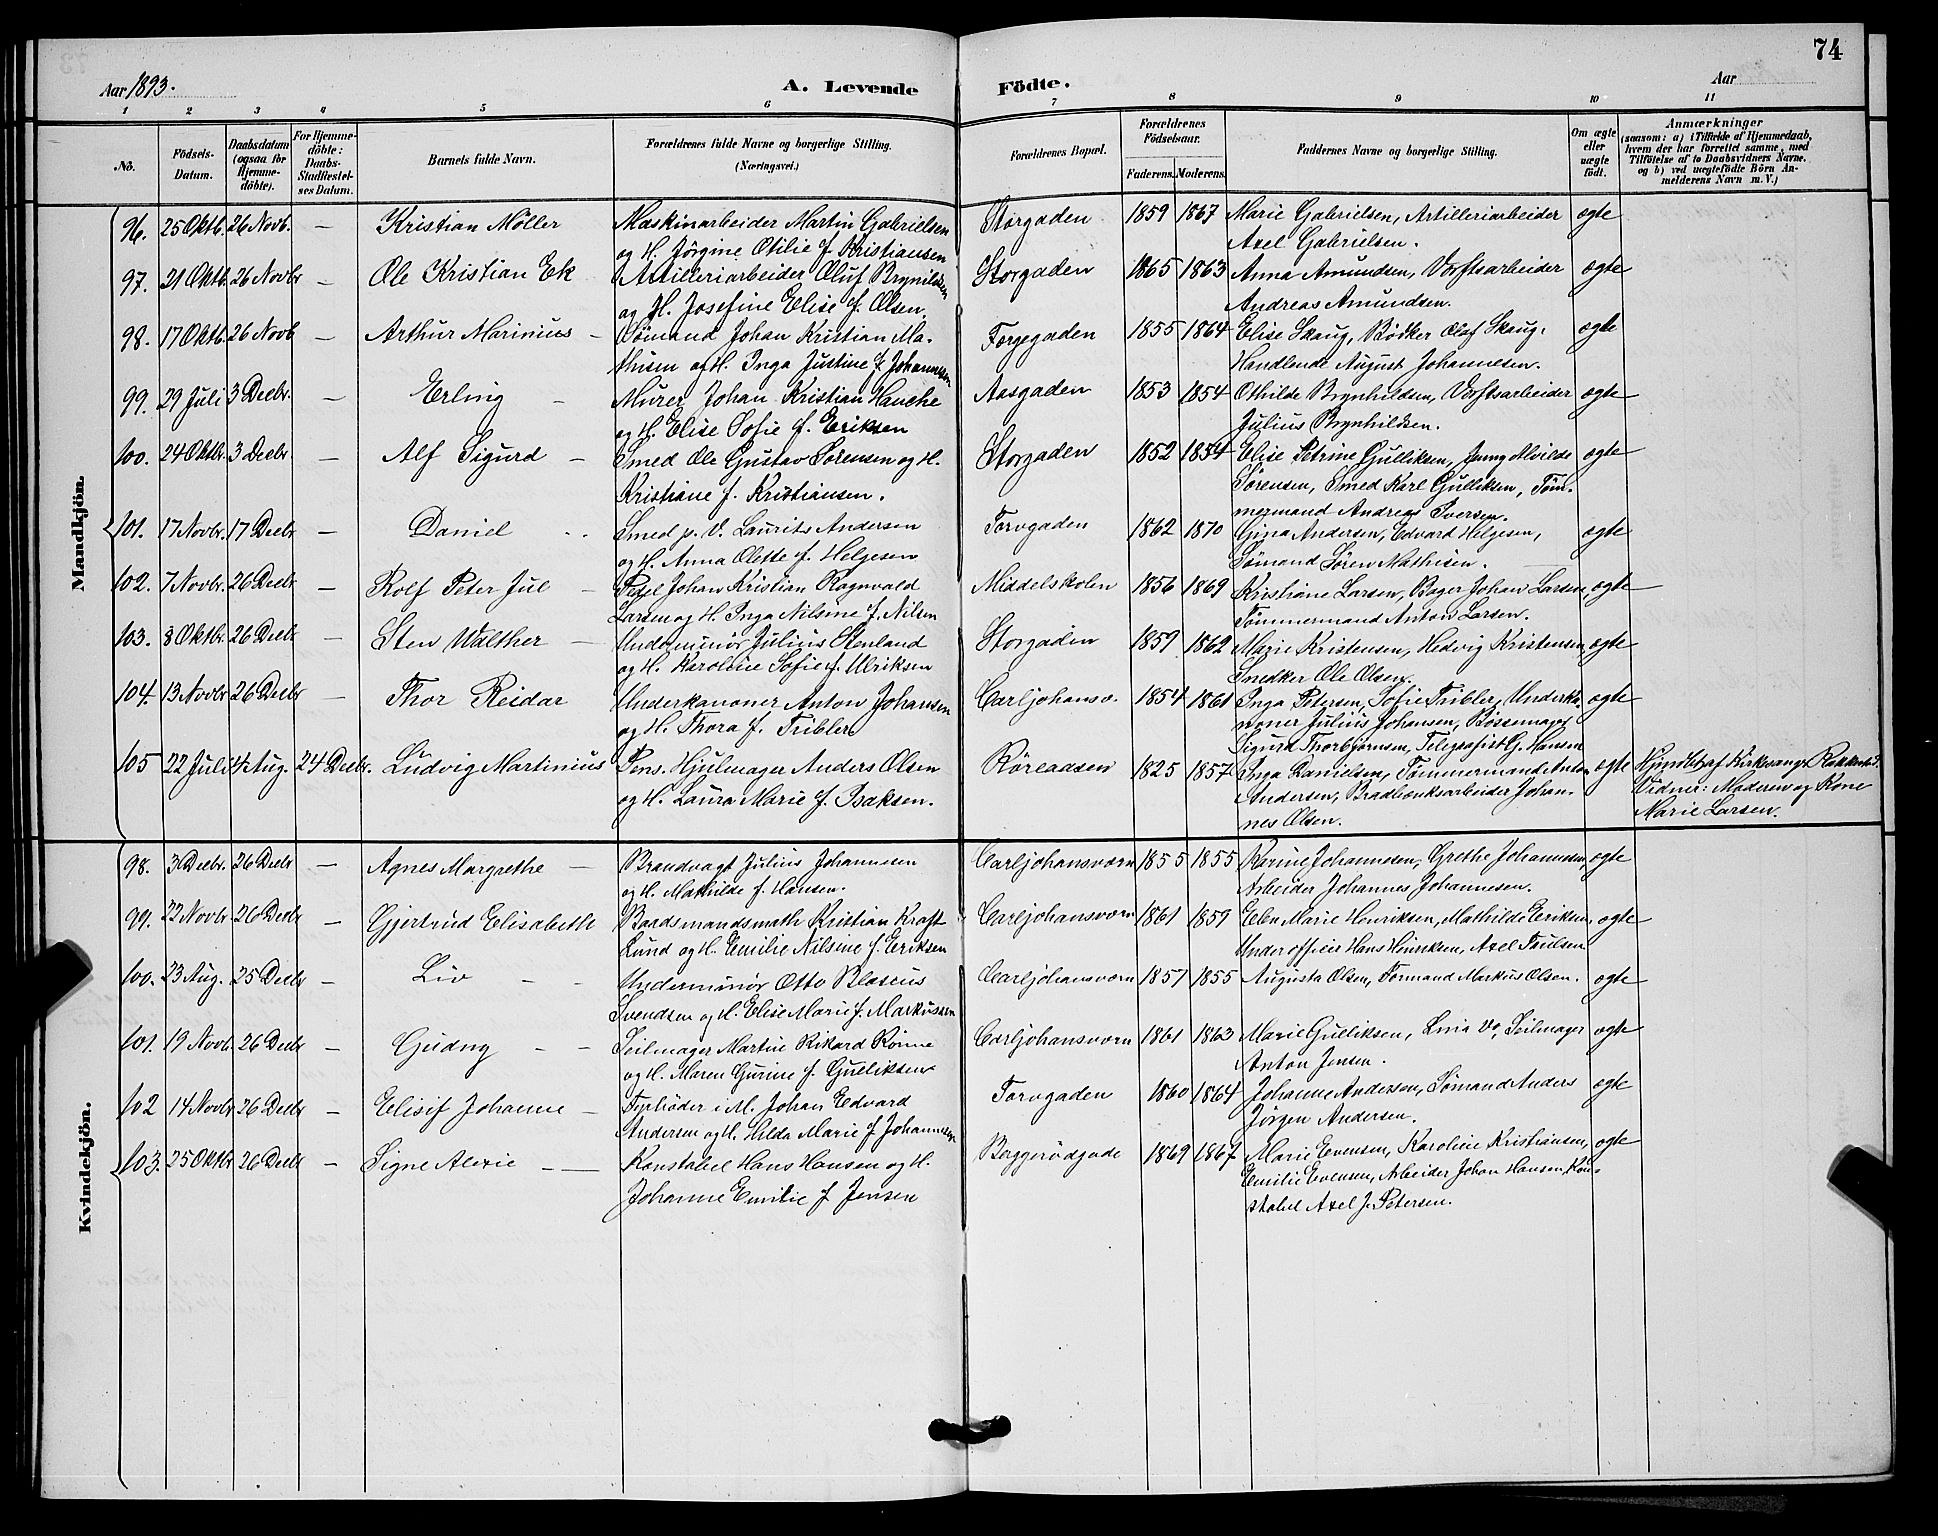 74
Aar 1893.
A. Levende
Födte.
Aar
1 2 3 4 5 6 7 8 9 10 11
No.
Födsels-
Datum.
Daabsdatum
(ogsaa for
Hjemme-
döbte).
For Hjemme-
döbte:
Daabs-
Stadfæstel-
ses Datum.
Barnets fulde Navn.
Forældrenes fulde Navne og borgerlige Stilling.
(Næringsvei.)
Forældrenes Bopæl.
Forældrenes
Födselsaar.
Faderens. Moderens.
Faddernes Navne og borgerlige Stilling.
Om ægte
eller
uægte
født.
Anmærkninger
(saasom: a) i Tilfælde af Hjemmedaab,
hvem der har forrettet samme, med
Tilföielse af to Daabsvidners Navne,
og b) ved uægtefödte Börn An-
melderens Navn m. V.)
Mandkjön.
96. 25 Oktb. 26 Novb. — Kristian Møller Maskinarbeider Martin Gabrielsen Storgaden 1859 1867 Marie Gabrielsen, Artilleriarbeider ægte
og H. Jörgine Otilie f. Kristiansen Axel Gabrielsen.
97. 21 Oktb. 26 Novbr — Ole Kristian Ek Artilleriarbeider Oluf Brynildsen Storgaden 1865 1863 Anna Amundsen, Verftsarbeider ægte
og H. Josefine Elise f. Olsen. Andreas Amundsen.
98. 17 Oktb. 26 Novb — Arthur Marinius — Sømand Johan Kristian Ma- Torgegaden 1855 1864 Elise Skaug, Bödker Olaf Skaug, ægte
thisen og H. Inga Justine f. Johannesen Handlende August Johannesen.
99. 29 Juli 3 Decbr. — Erling — Murer Johan Kristian Hauche Aasgaden 1853 1854 Othilde Brynhildsen, Verftsarbeider ægte
og H. Elise Sofie f. Eriksen Julius Brynhildsen.
100. 24 Oktbr. 3 Decbr. — Alf Sigurd — Smed Ole Gustav Sørensen og H. Storgaden 1852 1854 Elise Petrine Gulliksen, Jenny Alvilde ægte
Kristiane f. Kristiansen. Sørensen, Smed Karl Gulliksen, Töm-
mermand Andreas Iversen.
101. 17 Novbr. 17 Decbr — Daniel Smed p. V. Laurits Andersen Torvgaden 1862 1870 Gina Andersen, Edvard Helgesen, ægte
og H. Anna Olette f. Helgesen Sømand Søren Mathisen.
102. 7 Novbr. 26 Decbr — Rolf Peter Jul — Pedel Johan Kristian Ragnvald Middelskolen 1856 1869 Kristiane Larsen, Bager Johan Larsen, ægte
Larsen og H. Inga Nilsine f. Nilsen Tömmermand Anton Larsen.
103. 8 Oktbr. 26 Decbr — Sten Walther — Underminör Julius Stenland Storgaden 1859 1862 Marie Kristensen, Hedvig Kristensen ægte
og H. Karoline Sofie f. Ulriksen Snedker Ole Olsen.
104. 13 Novbr. 26 Decbr — Thor Reidar Underkanoner Anton Johansen Carljohansv. 1854 1861 Inga Petersen, Sofie Tribler, Underka- ægte
og H. Thora f. Tribler noner Julius Johansen, Bössemager
Sigurd Thorbjörnsen, Telegrafist G. Hansen
105 22 Juli 4 Aug. 24 Decbr. Ludvig Martinius Pens. Hjulmager Anders Olsen Röreaasen 1825 1857 Inga Danielsen, Tømmermand Anton ægte Hjmdbt. af Kirkesang.
og H. Laura Marie f. Isaksen. Andersen, Bradbænksarbeider Johan- Vidner: Moderen og Kone
nes Olsen. Marie Larsen.
Kvindekjön.
98. 3 Decbr. 26 Decbr — Agnes Margrethe — Brandvagt Julius Johannesen Carljohansværn 1855 1855 Karine Johannesen, Grethe Johannesen, ægte
og H. Mathilde f. Hansen. Arbeider Johannes Johannesen.
99. 22 Novbr. 26 Decbr — Gjertrud Elisabeth Baadsmandsmath Kristian Kraft Carljohansværn 1861 1859 Elen Marie Henriksen, Mathilde Eriksen, ægte
Lund og H. Emilie Nilsine f. Eriksen Underofficer Hans Henriksen, Axel Paulsen
100. 23 Aug. 25 Decbr — Liv — Underminör Otto Blasius Carljohansværn 1857 1855 Augusta Olsen, Formand Markus Olsen. ægte
Svendsen og H. Elise Marie f. Markussen
101. 19 Novb. 26 Decbr — Gudny — Seilmager Martin Rikard Rönne Carljohansværn 1861 1863 Marie Gulliksen, Lina Vo, Seilmager ægte
og H. Maren Gurine f. Gulliksen Anton Jensen.
102 14 Novbr. 26 Decbr — Elisif Johanne — Fyrböder i M. Johan Edvard Torvgaden 1860 1864 Johanne Andersen, Sømand Anders ægte
Andersen og H. Hilda Marie f. Johannesen Jörgen Andersen.
103. 25 Oktbr 26 Decbr — Signe Alexie — Konstabel Hans Hansen og H. Berggerödgade 1869 1867 Marie Evensen, Karoline Kristiansen, ægte
Johanne Emilie f. Jensen Emilie Evensen, Arbeider Johan Hansen, Kon-
stabel Axel J. Petersen.